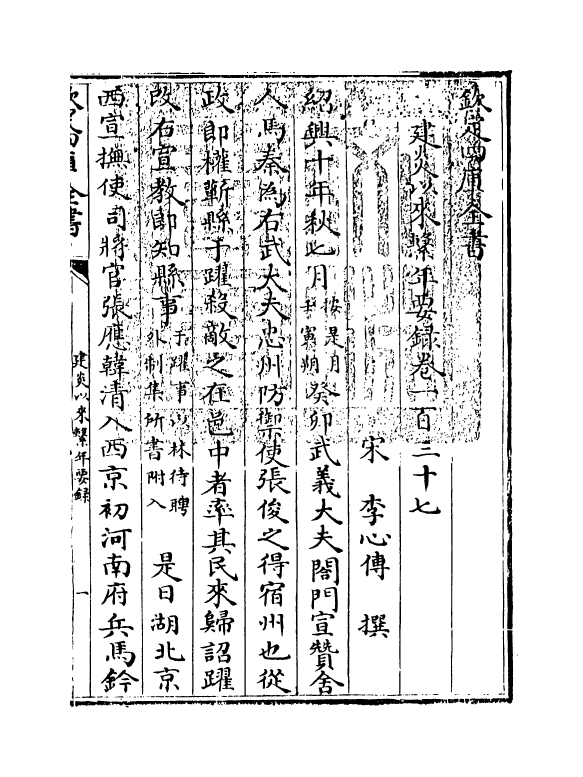 欽定四庫全書
建炎以來繫年要錄卷一百三十七
宋 李心傳 撰
紹興十年秋七月按是月壬寅朔癸卯武義大夫閤門宣贊舍
人馬秦為右武大夫忠州防禦使張俊之得宿州也從
政郎權蘄縣于躍殺敵之在邑中者率其民來歸詔躍
改右宣教郎知縣事于躍事以林待聘外制集所書附入 是日湖北京
西宣撫使司將官張應韓清入西京初河南府兵馬鈐
欽定四庫全書
建炎以來繫年要錄
一